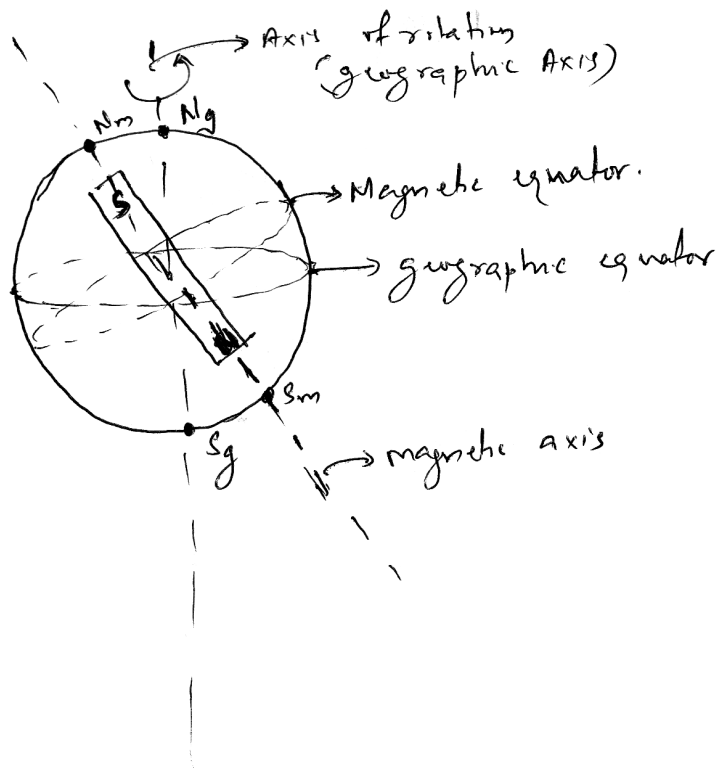 Axis of rotation
(geographic Axis)
Nm Ng
Magnetic equator.
S
geographic equator
Sm
Sg
magnetic axis